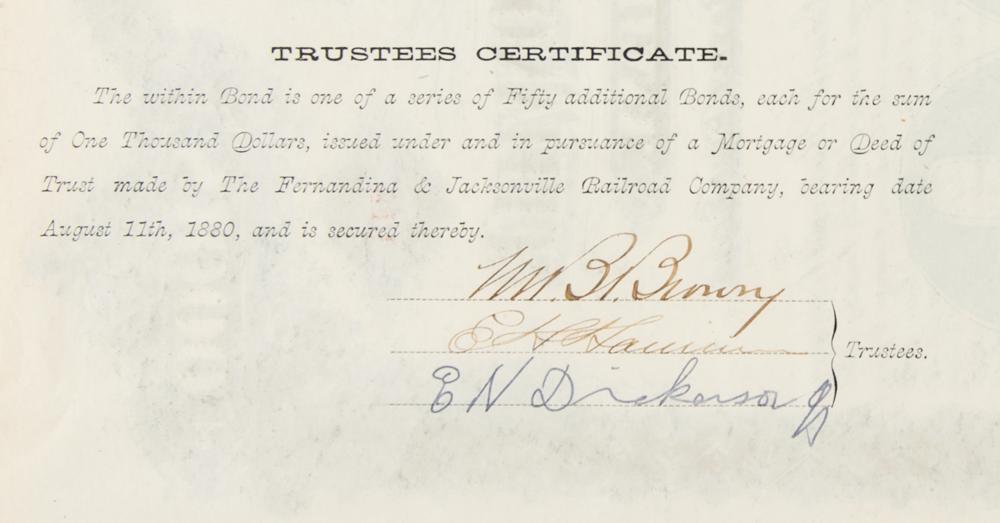 TRUSTEES CERTIFICATE.
The within Bond is one of a series of Fifty additional Bonds, each for the sum
of One Thousand Dollars, issued under and in pursuance of a Mortgage or Deed of
Trust made by The Fernandina & Jacksonville Railroad Company, bearing date
August 11th, 1880, and is secured thereby.
Wm. B. Brown
E H
E N Dickerson Jr
Trustees.